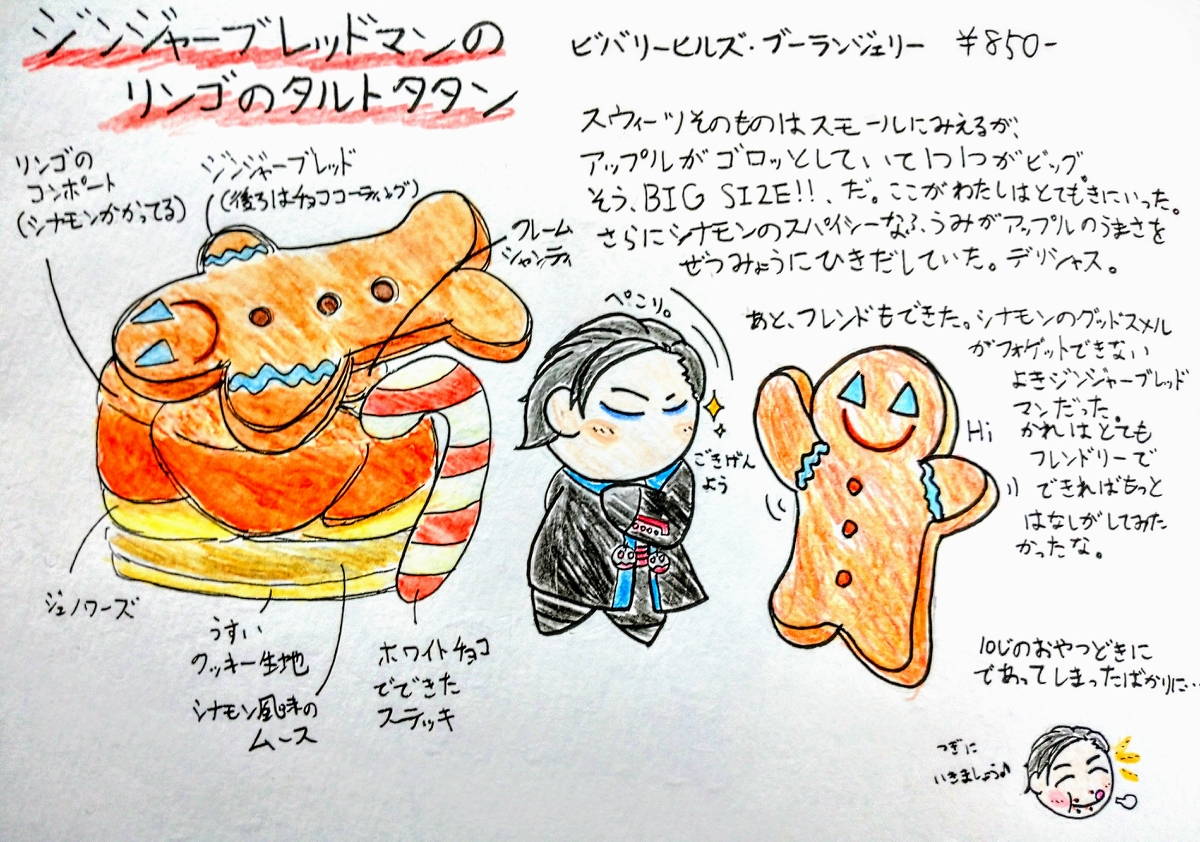 ジンジャーブレッドマンの
リンゴのタルトタタン
ビバリーヒルズ・ブーランジェリー ¥850-
スウィーツそのものはスモールにみえるが、
アップルがゴロッとしていて1つ1つがビッグ。
そう、BIG SIZE!!、だ。ここがわたしはとてもきにいった。
さらにシナモンのスパイシーなふうみがアップルのうまさを
ぜつみょうにひきだしていた。デリシャス。
リンゴの
コンポート
(シナモンかかってる)
ジンジャーブレッド
(後ろはチョココーティング)
クレーム
シャンティ
ぺこり。
ごきげん
よう
あと、フレンドもできた。シナモンのグッドスメル
がフォゲットできない
よきジンジャーブレッド
マンだった。
かれはとても
フレンドリーで
できればもっと
はなしがしてみた
かったな。
Hi
ジェノワーズ
うすい
クッキー生地
シナモン風味の
ムース
ホワイトチョコ
でできた
ステッキ
10じのおやつどきに
であってしまったばかりに…
つぎに
いきましょう♪